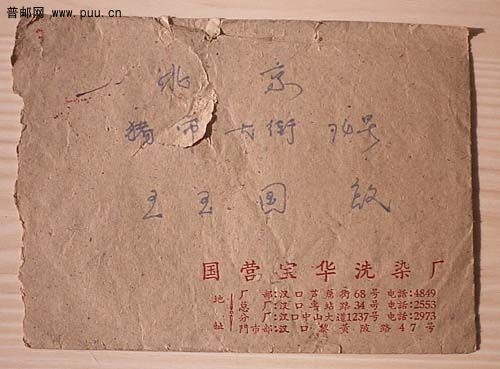 普邮网
www.puu.cn
北 京
猪市大街 34号
王玉国 啟
国营宝华洗染厂
地址
厂部:汉口芦蓆街68号 电话:4849
总厂:汉口 站路34号 电话:2553
分厂:汉口中山大道1237号 电话:2973
門市部:汉口黎黄陂路47号